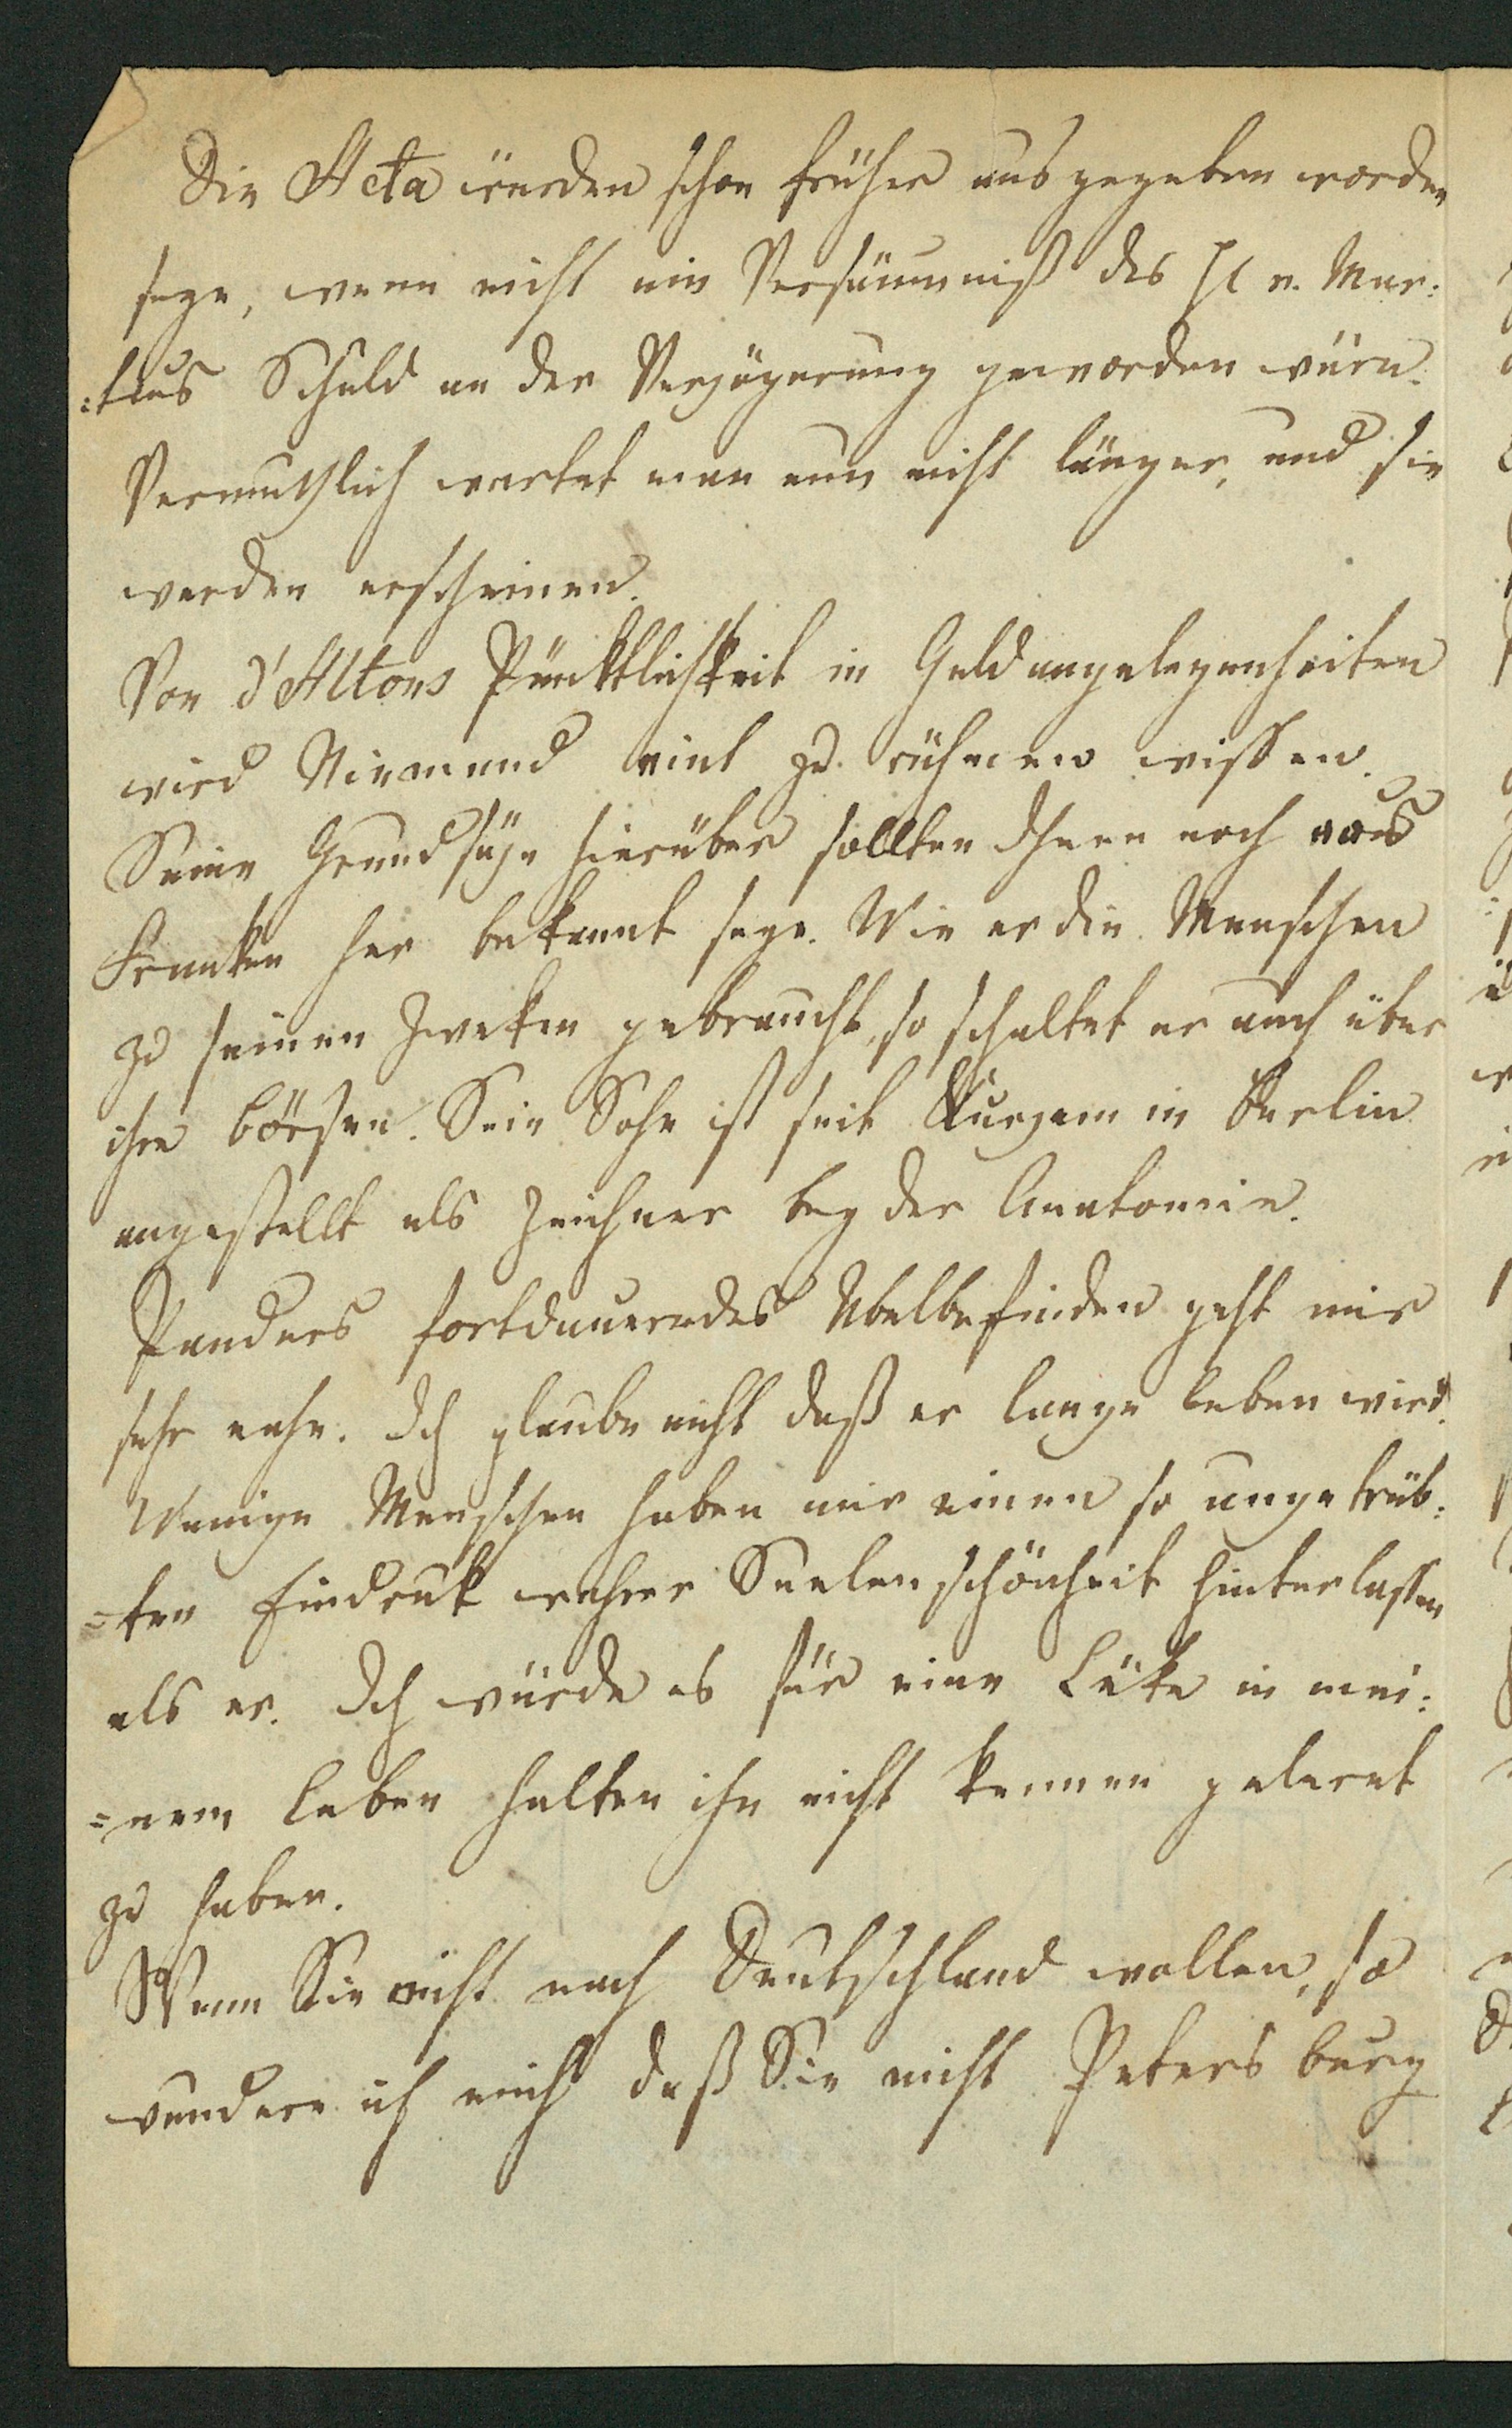 Die Acta würden schon früher ausgegeben worden
seyn, wenn nicht ein Versäumniß des H v. Mar:
:tius Schuld an der Verzögerung geworden wäre.
Vermuthlich wartet man nun nicht länger, und sie
werden erscheinen.
Von d'Altons Pünktlichkeit in Geldangelegenheiten
wird Niemand viel zu rühmen wissen.
Seine Grundsäze hierüber sollten Ihnen noch aus
Franken her bekannt seyn. Wie er die Menschen
zu seinen Zweken gebraucht, so schaltet er auch über
ihre Börsen. Sein Sohn ist seit Kurzem in Berlin
angestellt als Zeichner bey der Anatomie.
Panders fortdauerndes Uebelbefinden geht mir
sehr nahe. Ich glaube nicht daß er lange leben wird.
Wenige Menschen haben mir einen so ungetrüb:
=ten Eindruk wahrer Seelenschönheit hinterlassen
als er. Ich würde es für eine Lüke in mei:
=nem Leben halten ihn nicht kennen gelernt
zu haben.
Wenn Sie nicht nach Deutschland wollen, so
wundere ich mich daß Sie nicht Petersburg